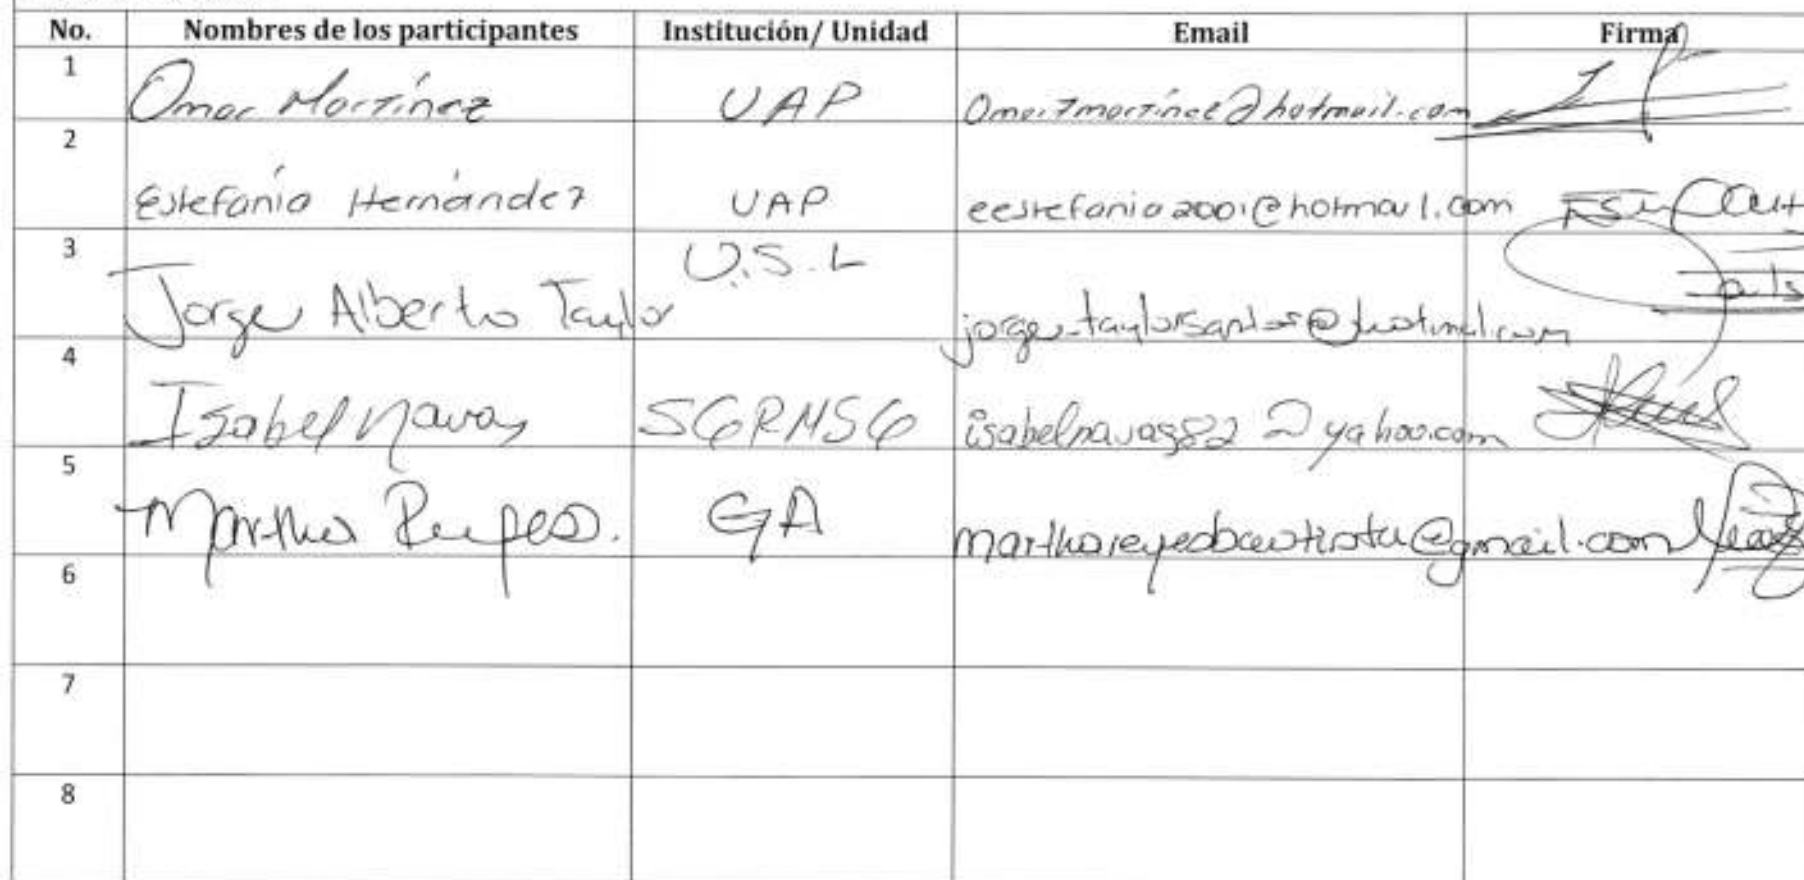 No. Nombres de los participantes Institución/ Unidad Email Firma
1 Omar Martínez UAP Omar7martinez@hotmail.com
2 Estefanía Hernández UAP eestefania2001@hotmail.com
3 Jorge Alberto Taylor U.S.L jorge_taylorsantos@hotmail.com
4 Isabel Navas SGRMSG isabelnavas82@yahoo.com
5 Martha Reyes. GA marthareyesbautista@gmail.com
6
7
8